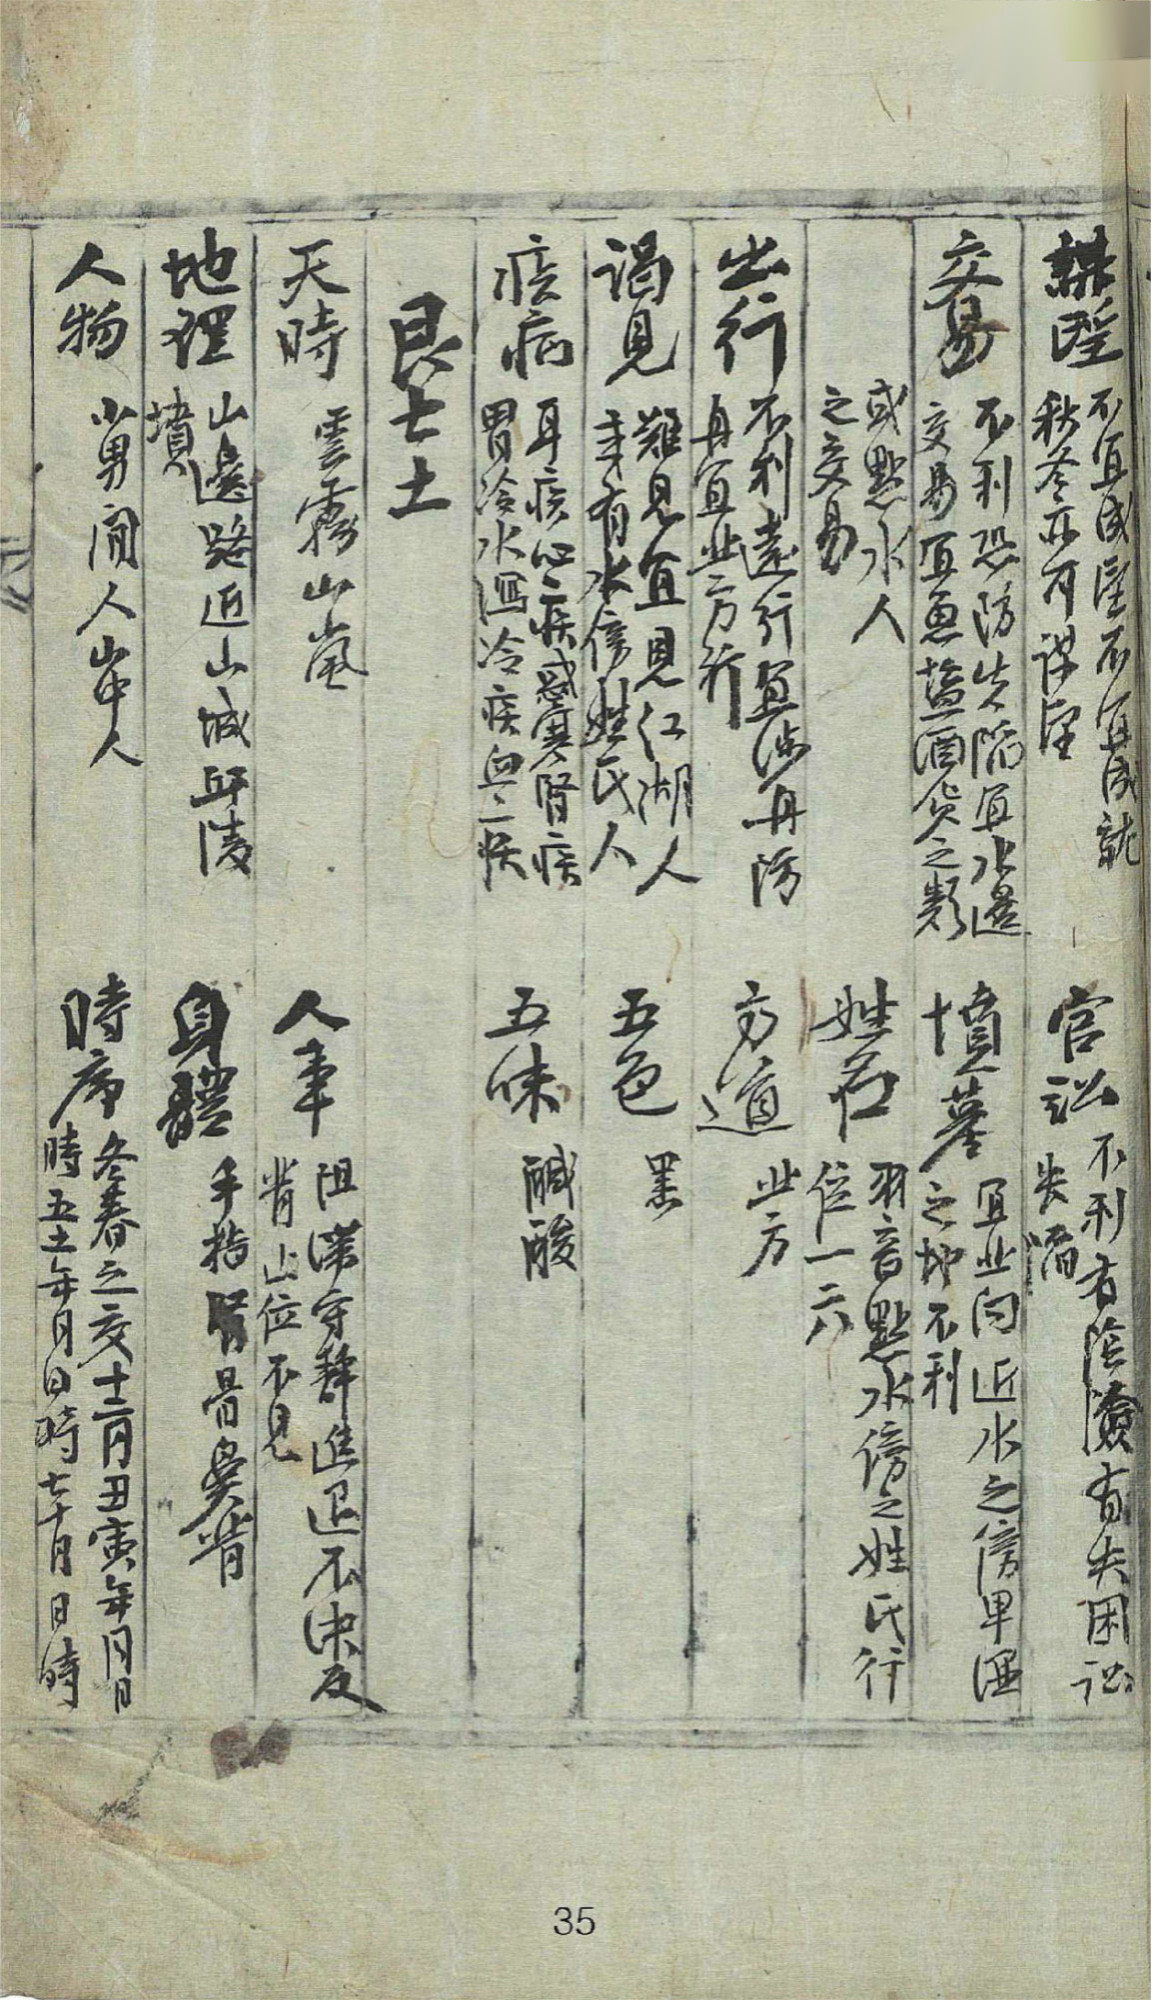 謀望 不宜成望不宜成就
秋冬亦可謀望
官訟 不利有陰險有失困訟
失陷
交易 不利恐防失陷宜水邊
交易宜魚塩酒貨之類
或點水人
之交易
墳墓 宜北向近水之傍卑湿
之地不利
姓名 羽音點水傍之姓氏行
位一六
出行 不利遠行宜涉舟防
舟宜北方行
方道 北方
謁見 難見宜見江湖人
有水傍姓氏人
五色 黑
疾病 耳疾心疾感寒腎疾
胃冷水瀉冷疾血之疾
五味 鹹酸
艮七土
天時 雲霧山嵐
人事 阻滯守靜進退不決反
背山位不見
地理 山邊路近山城丘陵
墳
身體 手指骨鼻背
人物 少男閒人山中人
時序 冬春之交十二月丑寅年月日
時五土年月日時七十月日時
35